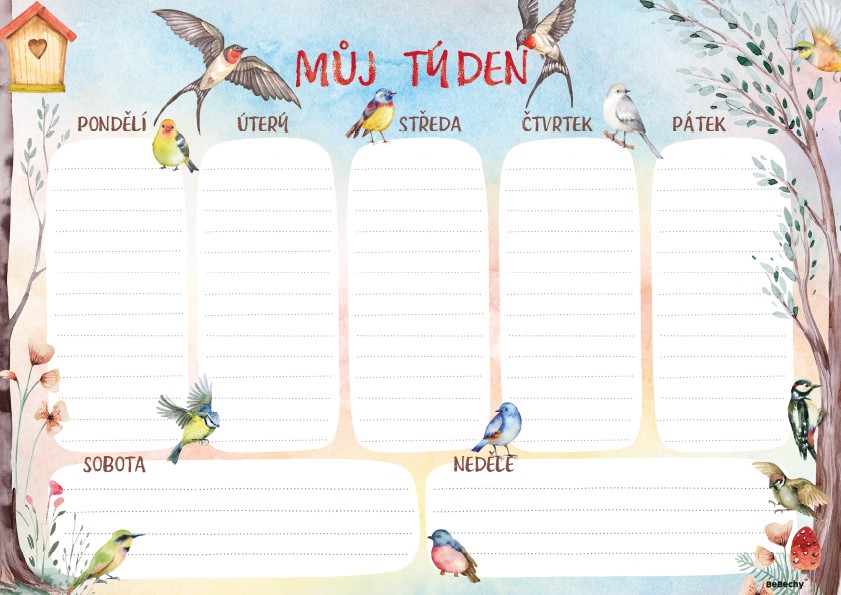 MŮJ TÝDEN
PONDĚLÍ
ÚTERÝ
STŘEDA
ČTVRTEK
PÁTEK
SOBOTA
NEDĚLE
BeBechy